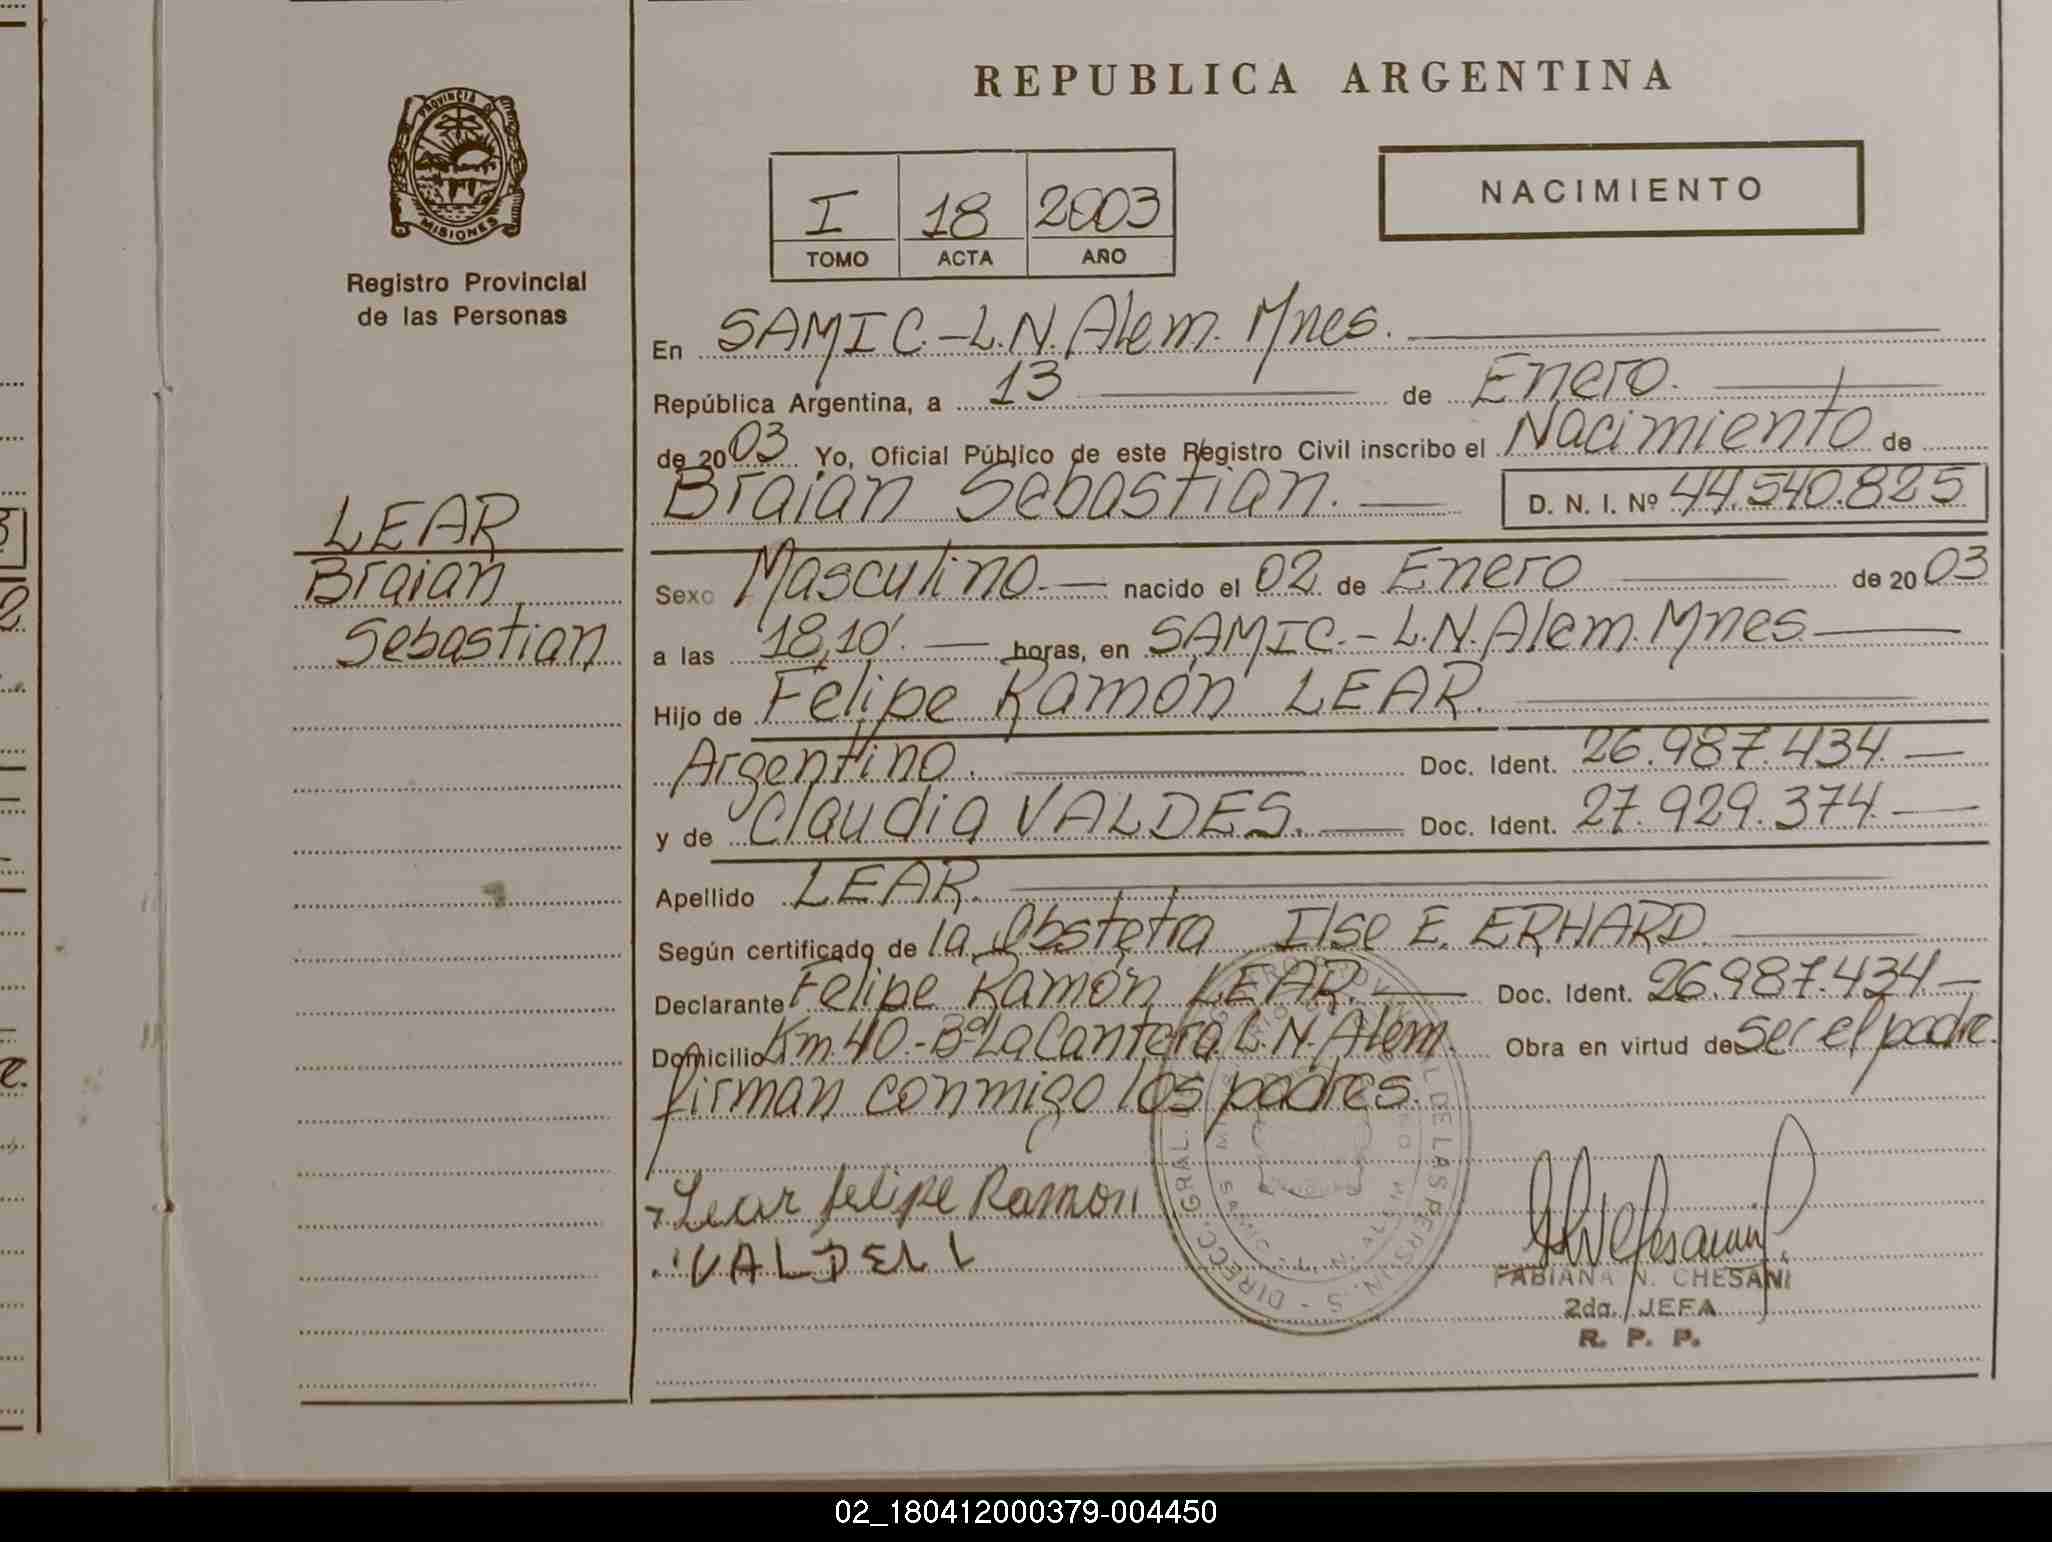 REPUBLICA ARGENTINA
PROVINCIA DE
MISIONES
Registro Provincial
de las Personas
I 18 2003
TOMO ACTA AÑO
NACIMIENTO
En SAMIC.-L.N.Alem. Mnes.
República Argentina, a 13 de Enero.
de 2003 Yo, Oficial Público de este Registro Civil inscribo el Nacimiento de
Braian Sebastian. D. N. I. Nº 44.540.825
LEAR
Braian
Sebastian
Sexo Masculino.- nacido el 02 de Enero de 2003
a las 18,10'. horas, en SAMIC.-L.N.Alem. Mnes.
Hijo de Felipe Ramón LEAR.
Argentino. Doc. Ident. 26.987.434.-
y de Claudia VALDES. Doc. Ident. 27.929.374.-
Apellido LEAR.
Según certificado de la Obstetra Ilse E. ERHARD.
Declarante Felipe Ramón LEAR. Doc. Ident. 26.987.434.-
Domicilio Km.40.-Bº La Cantera. L.N.Alem. Obra en virtud de Ser el padre.
firman conmigo los padres.
Lear felipe Ramon
FABIANA N. CHESANI
2da. JEFA
R. P. P.
02_180412000379-004450